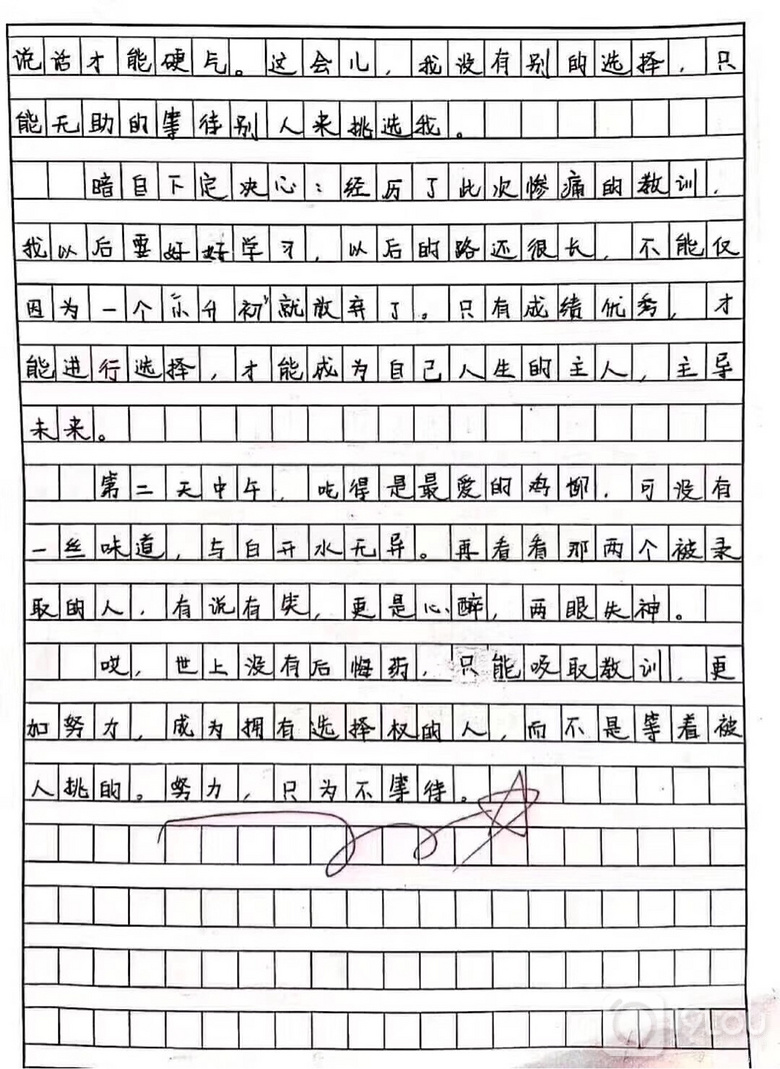 说话才能硬气。这会儿，我没有别的选择，只
能无助的等待别人来挑选我。
暗自下定决心：经历了此次惨痛的教训，
我以后要好好学习，以后的路还很长，不能仅
因为一个“小升初”就放弃了。只有成绩优秀，才
能进行选择，才能成为自己人生的主人，主导
未来。
第二天中午，吃得是最爱的鸡柳，可没有
一丝味道，与白开水无异。再看看那两个被录
取的人，有说有笑，更是心醉，两眼失神。
哎，世上没有后悔药，只能吸取教训，更
加努力，成为拥有选择权的人，而不是等着被
人挑的。努力，只为不等待。
19lou